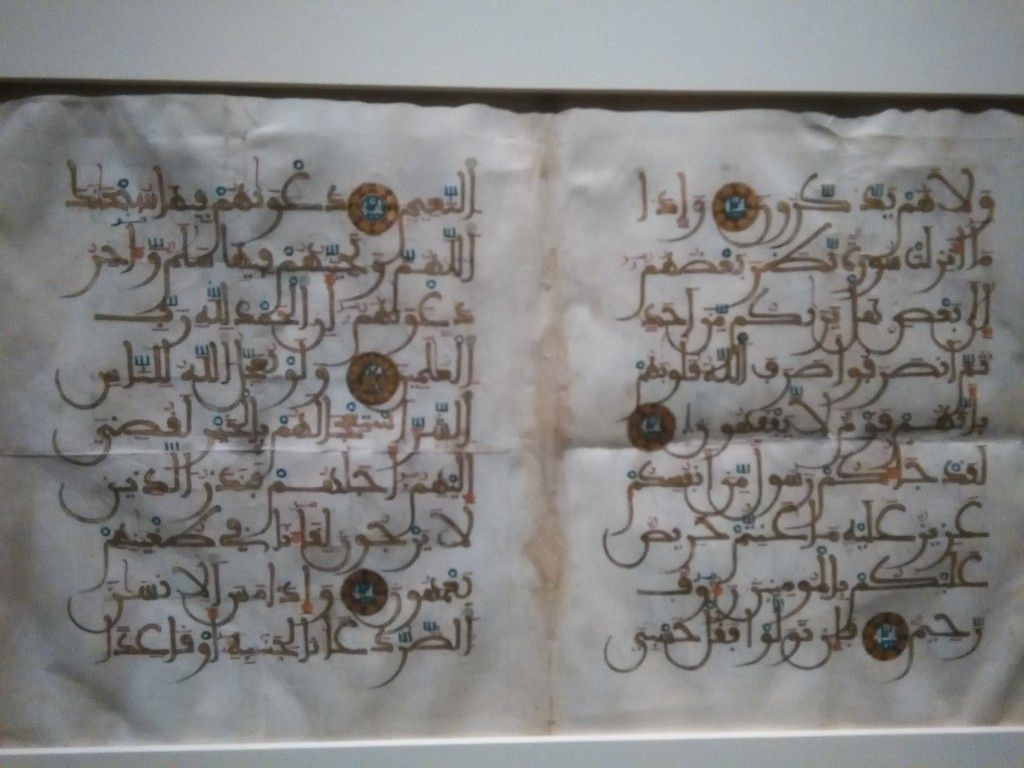 ولا هم يذكرون وإذا
ما أنزلت سورة نظر بعضهم
إلى بعض هل يريكم من أحد
ثم انصرفوا صرف الله قلوبهم
بأنهم قوم لا يفقهون
لقد جاءكم رسول من أنفسكم
عزيز عليه ما عنتم حريص
عليكم بالمومنين رءوف
رحيم فإن تولوا فقل حسبي
النعيم دعويهم فيها سبحنك
اللهم وتحيتهم فيها سلم وءاخر
دعويهم أن الحمد لله رب
العلمين ولو يعجل الله للناس
الشر استعجالهم بالخير لقضي
إليهم أجلهم فنذر الذين
لا يرجون لقاءنا في طغينهم
يعمهون وإذا مس الإنسن
الضر دعانا لجنبه أو قاعدا